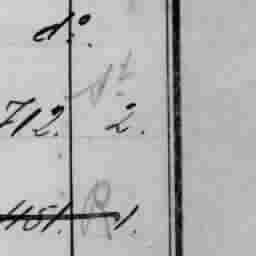 do.
712. 2.
451. R 1.